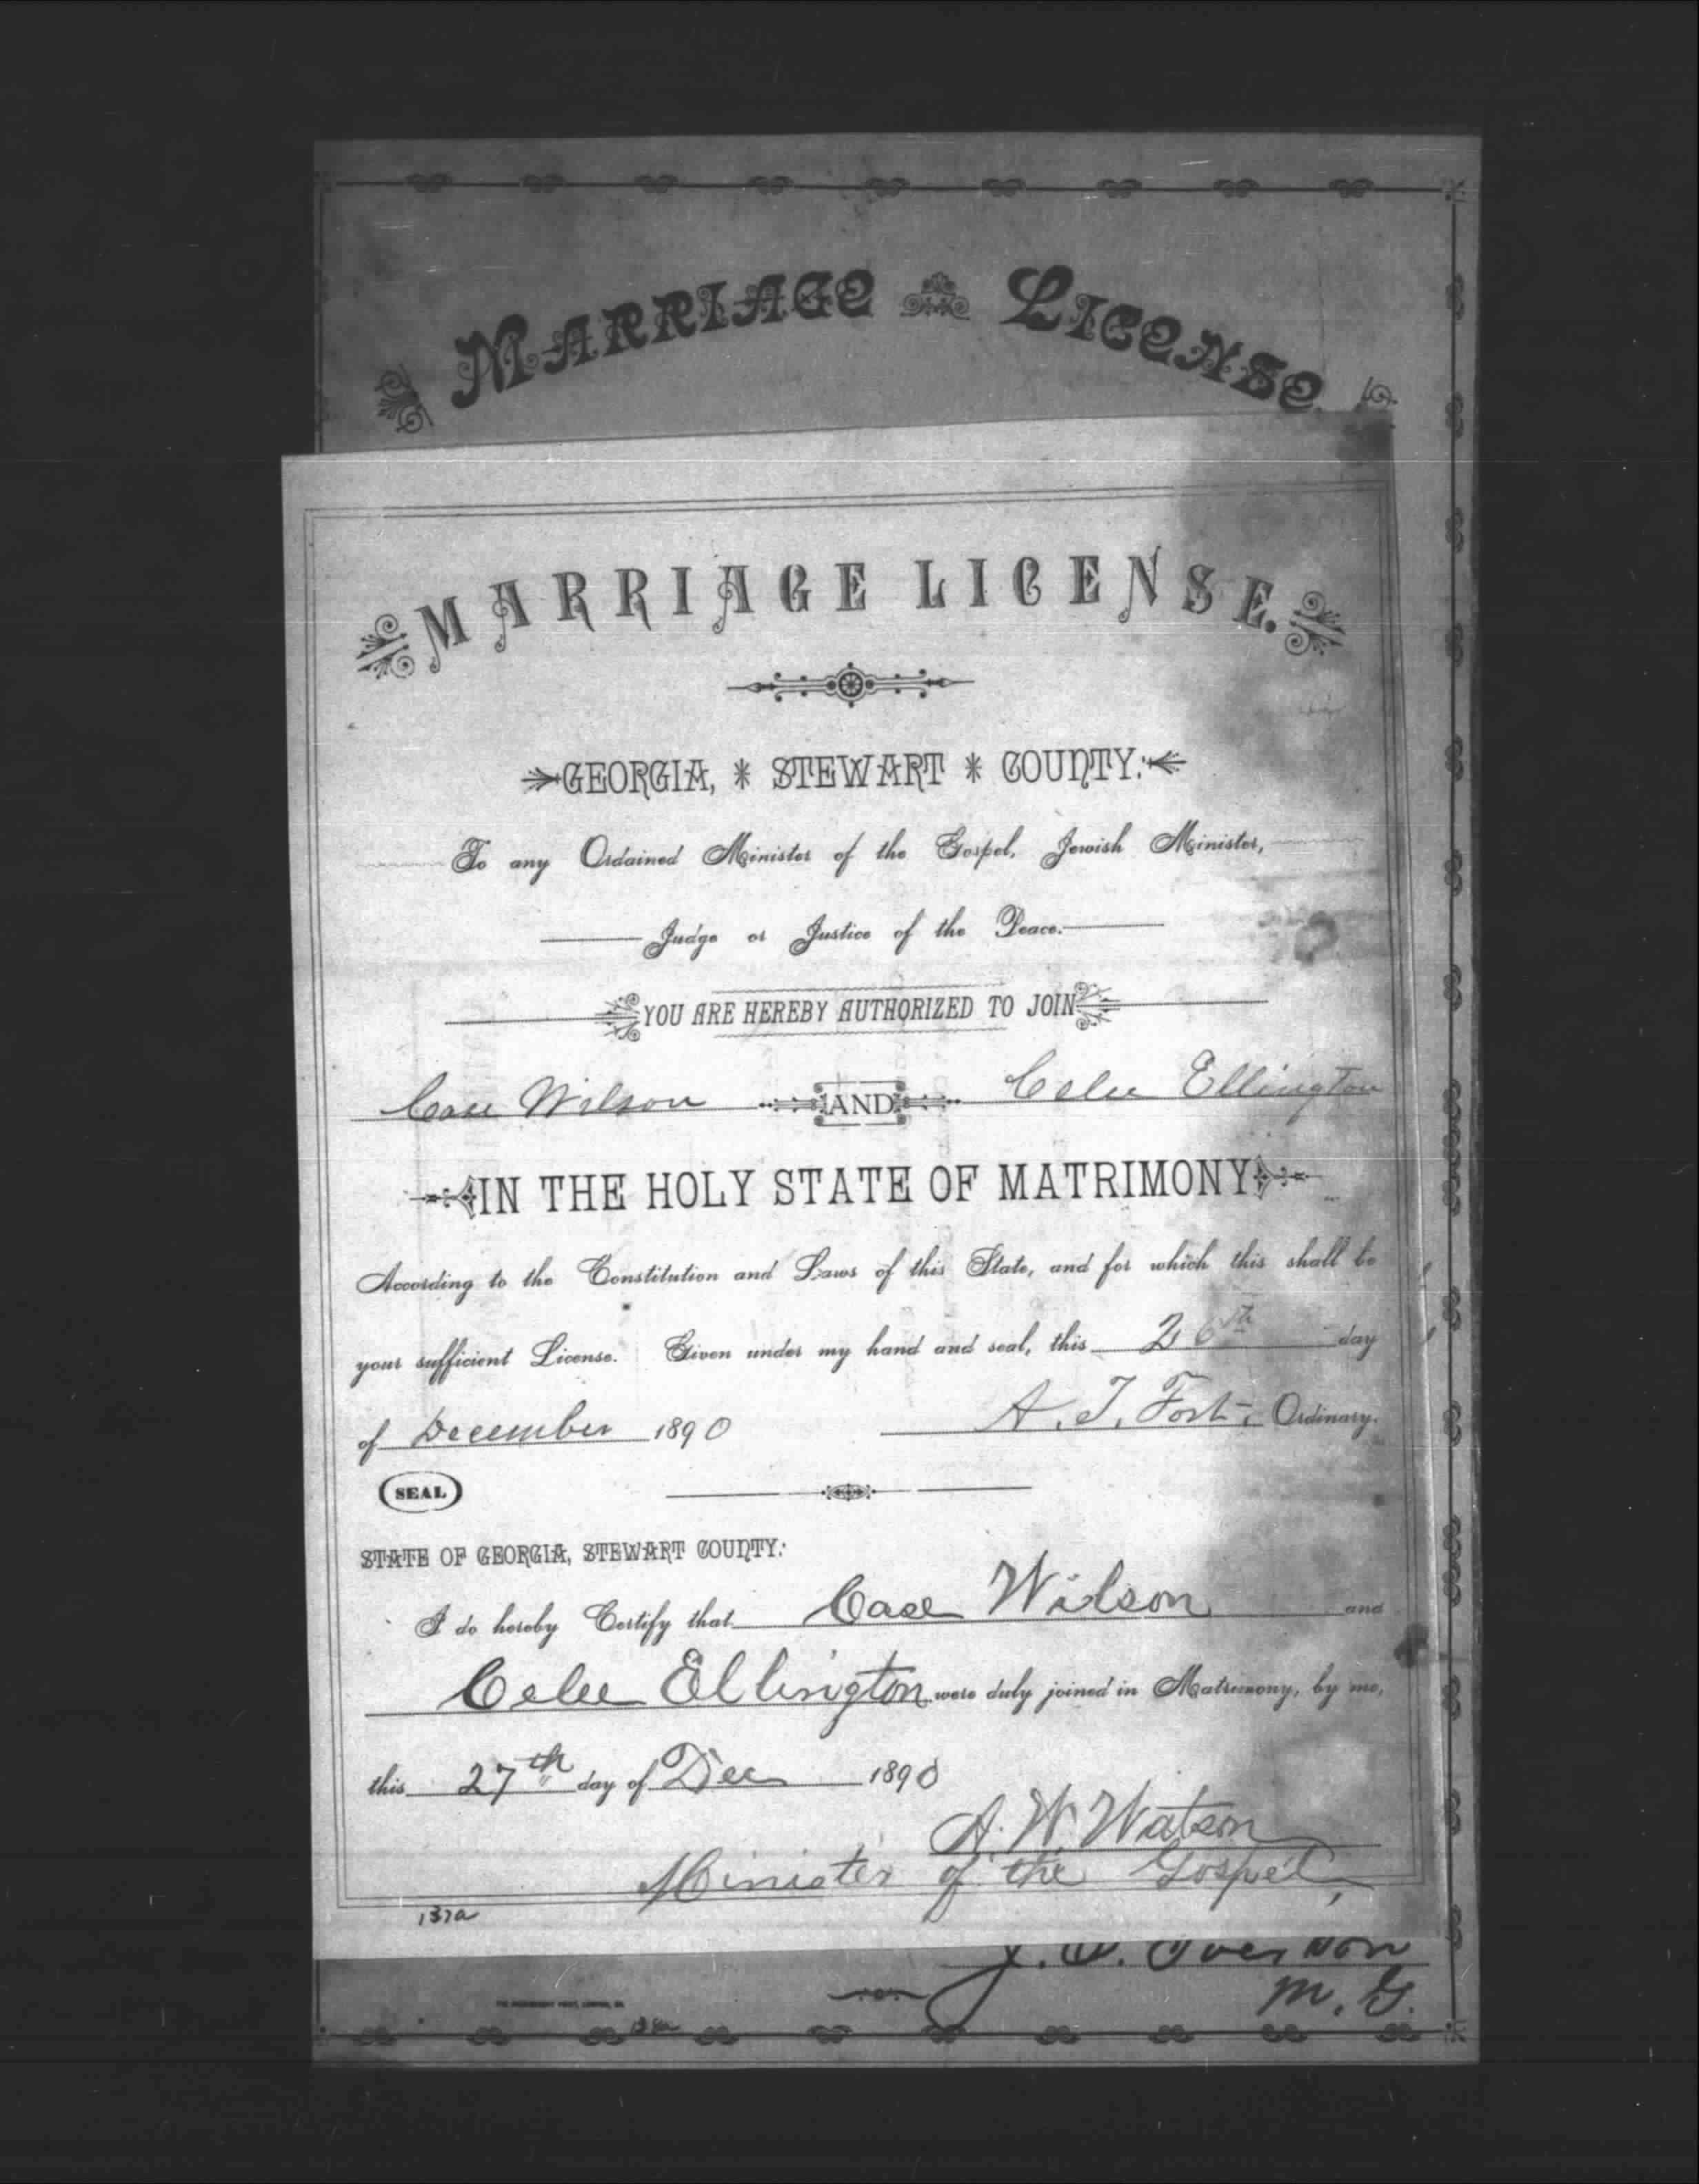 MARRIAGE LICENSE.
MARRIAGE LICENSE.
GEORGIA, * STEWART * COUNTY:
To any Ordained Minister of the Gospel, Jewish Minister,
Judge or Justice of the Peace.
YOU ARE HEREBY AUTHORIZED TO JOIN
Case Wilson AND Celee Ellington
IN THE HOLY STATE OF MATRIMONY
According to the Constitution and Laws of this State, and for which this shall be
your sufficient License. Given under my hand and seal, this 26th day
of December 1890 A. T. Fort, Ordinary.
SEAL
STATE OF GEORGIA, STEWART COUNTY:
I do hereby Certify that Case Wilson and
Celee Ellington were duly joined in Matrimony, by me,
this 27th day of Dec 1890
A. W. Watson
Minister of the Gospel,
137a
M. G.